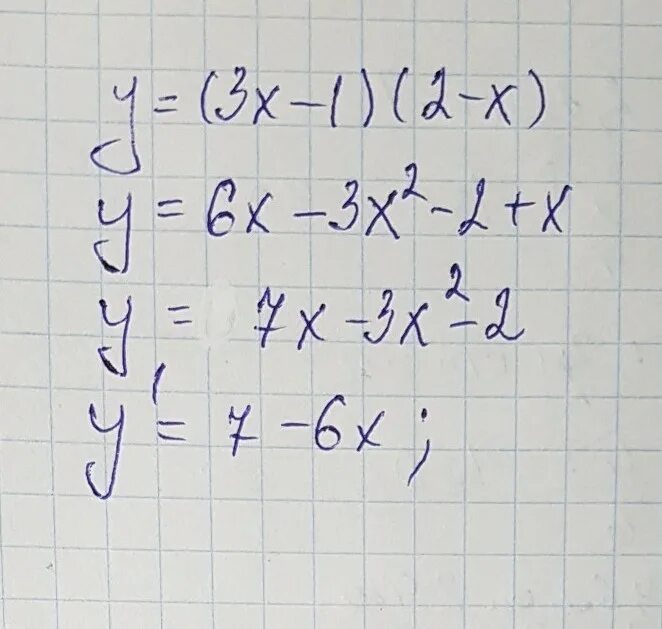 y = (3x - 1)(2 - x)
y = 6x - 3x² - 2 + x
y = 7x - 3x² - 2
y' = 7 - 6x;